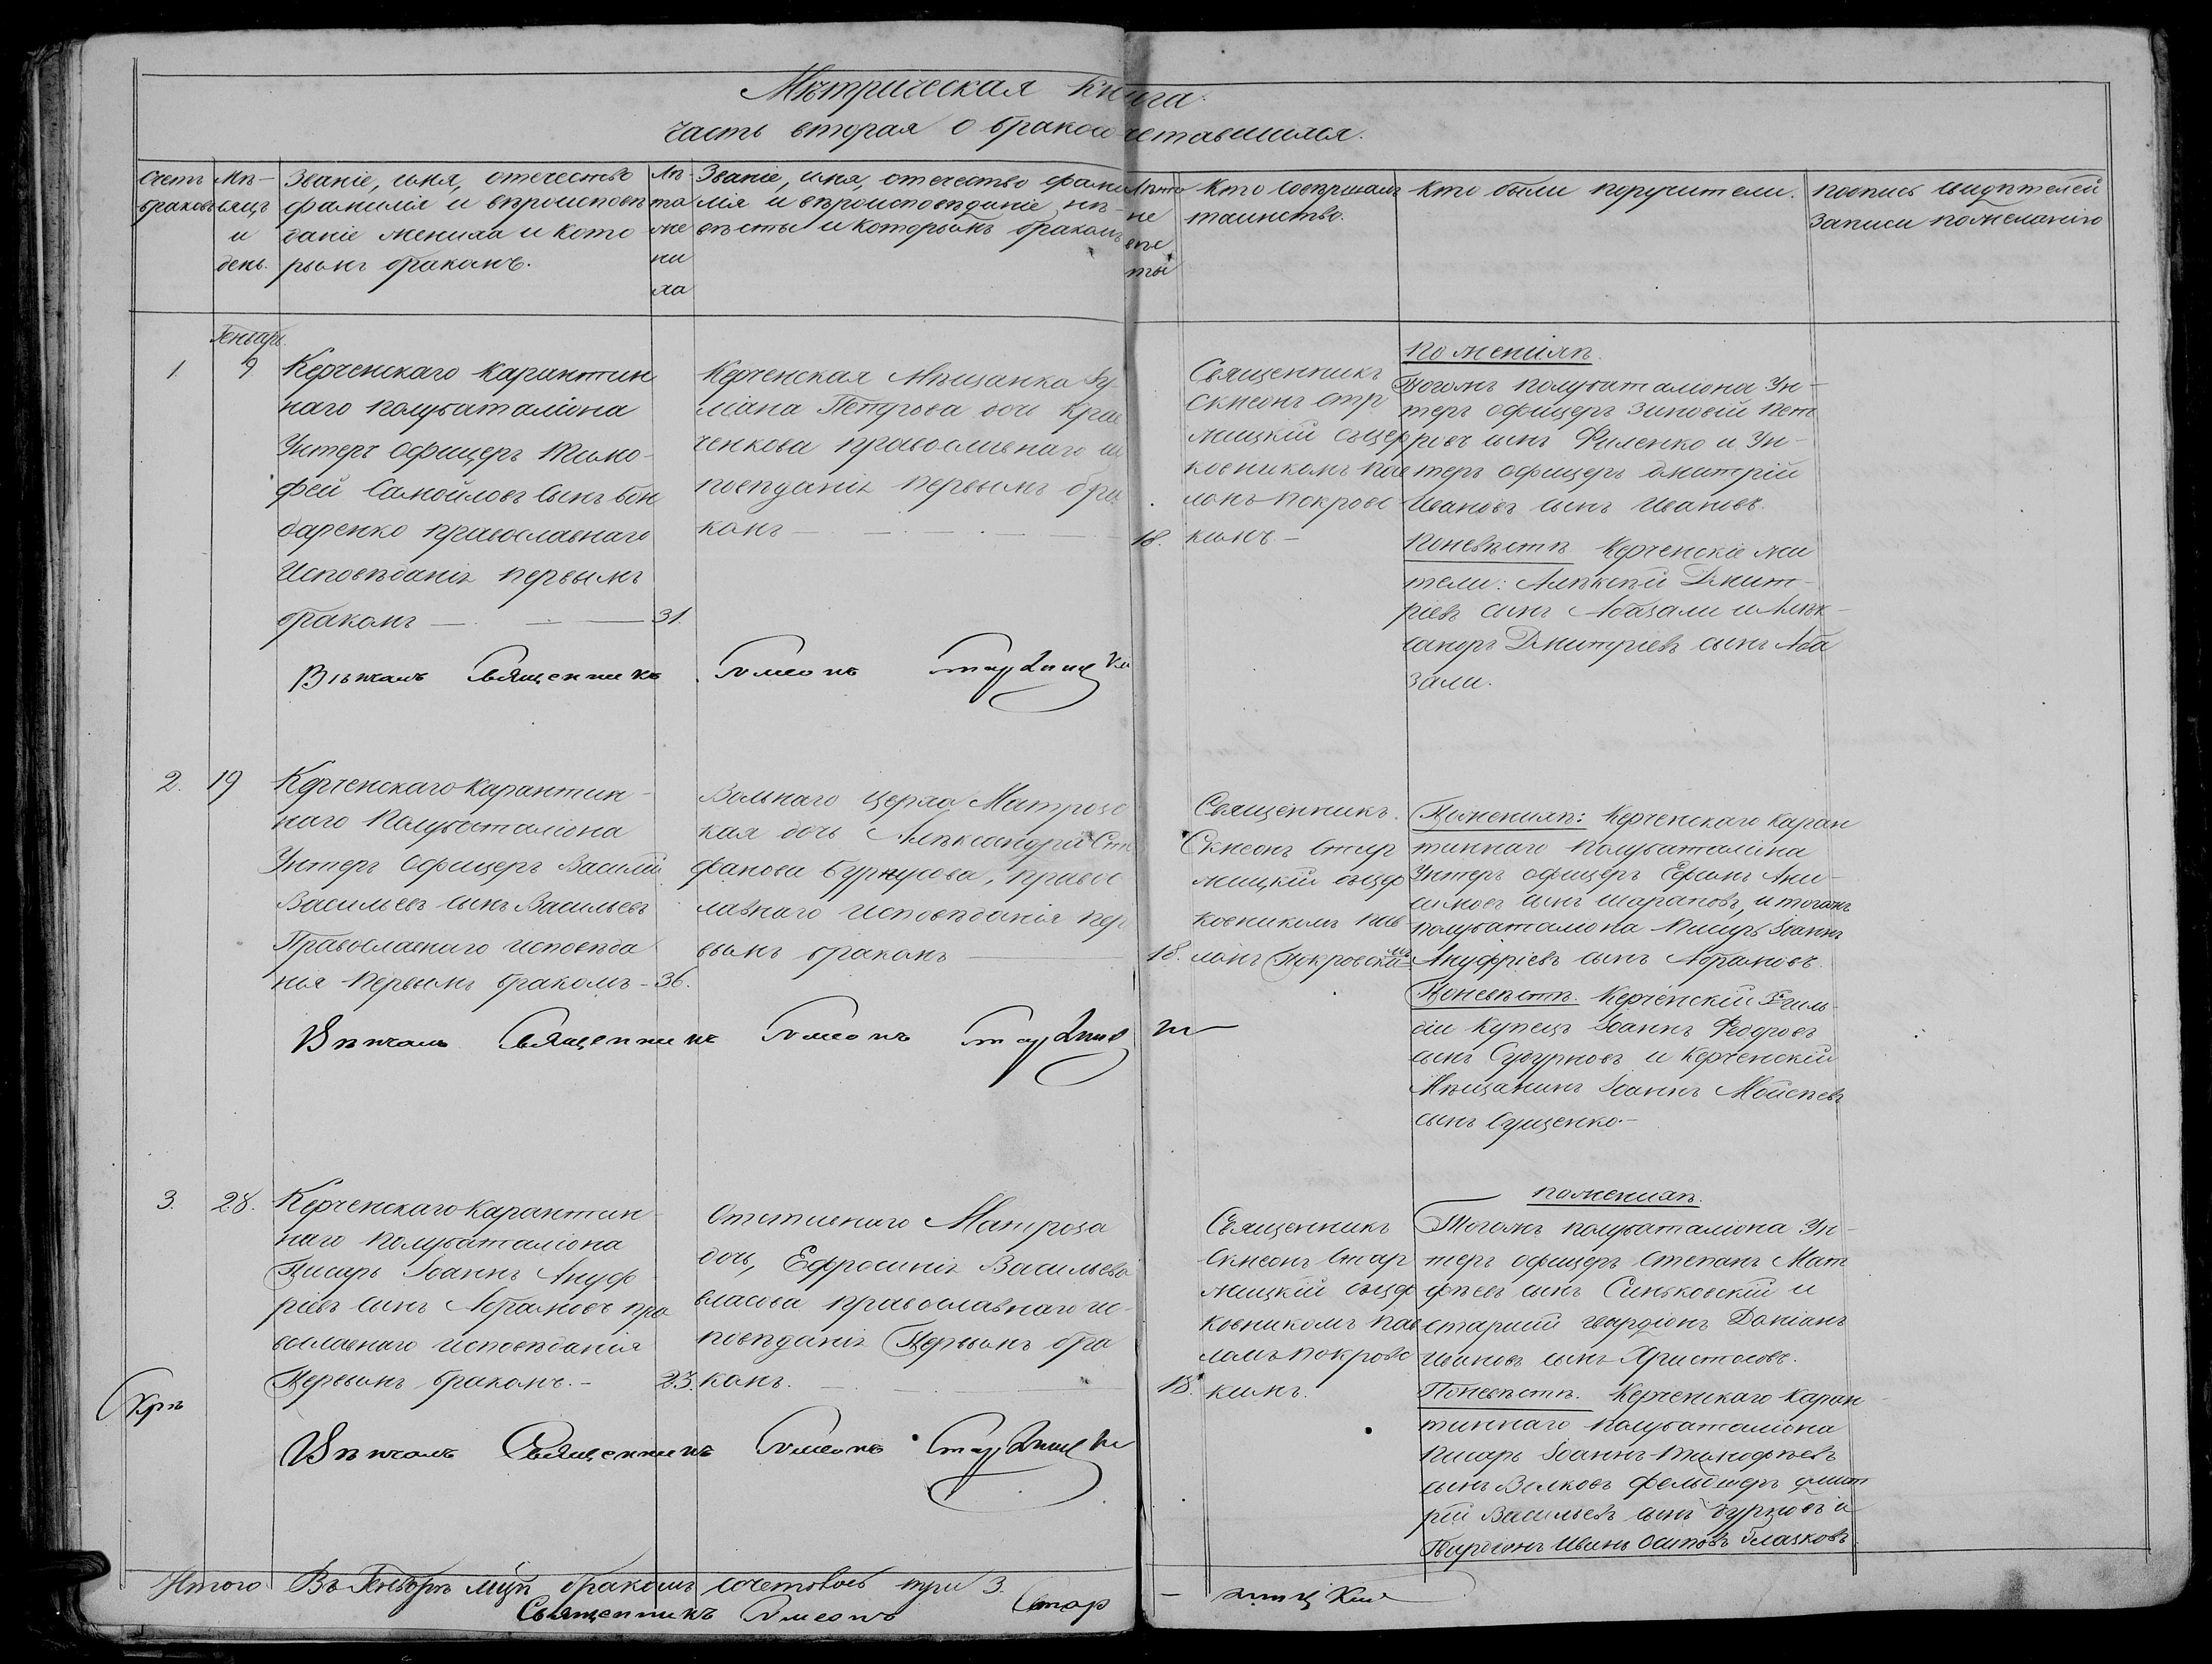 Метрическая Книга
часть вторая о бракосочетавшихся.
Счетъ
браковъ
Мѣ-
сяцъ
и
день.
Званіе, имя, отечество
фамилія и вѣроисповѣ
даніе жениха и кото
рымъ бракомъ.
Лѣ-
та
же
ни
ха
Званіе, имя, отечество фами
лія и вѣроисповѣданіе не-
вѣсты и которымъ бракомъ
Лѣта
не
вѣс
ты
Кто совершалъ
таинство.
Кто были поручители.
подпись свидѣтелей
записи пожеланію
Генваря
1.
9
Керченскаго карантин
наго полубаталіона
Унтеръ офицеръ Тимо-
фей Самойловъ сынъ Бон
даренко православнаго
Исповѣданія первымъ
бракомъ —
31.
Керченская Мѣщанка
Петрова дочь Крав
ченкова православнаго ис
повѣданія первымъ бра
комъ —
18.
Священникъ
Симеонъ Стар
жицкій съ цер
ковникомъ Пав
ломъ Покровс
кимъ. —
по женихѣ.
Тогожъ полубаталіона Ун-
теръ офицеръ Зиновій Пет
ровъ сынъ Филенко и Ун-
теръ офицеръ Дмитрій
Ивановъ сынъ Ивановъ.
Поневѣстѣ. Керченскіе жи
тели: Алексѣй Дмит-
ріевъ сынъ Абазали и Алек-
сандръ Дмитріевъ сынъ Аба
зали.
Вѣнчалъ Священникъ Симеонъ Старжицкій
2.
19
Керченскаго карантин-
наго Полубаталіона
Унтеръ офицеръ Василій
Васильевъ сынъ Васильевъ
Православнаго исповѣда
нія первымъ бракомъ —
36.
Вольнаго Матросс
кая дочь Александра Сте
фанова Бурнусова, правос
лавнаго исповѣданія пер
вымъ бракомъ —
18.
Священникъ.
Симеонъ Стар
жицкій съ цер
ковникомъ Пав
ломъ Покровскимъ
Поженихѣ: Керченскаго каран
тиннаго Полубаталіона
Унтеръ офицеръ Ефимъ Ани-
симовъ сынъ Шараповъ, и тогожъ
полубаталіона писарь Іоаннъ
Ануфріевъ сынъ Абрамовъ.
Поневѣстѣ. Керченскій гиль-
діи купецъ Іоаннъ Федоровъ
сынъ и Керченскій
Мѣщанинъ Іоаннъ Мойсѣевъ
сынъ Сущенко. —
Вѣнчалъ Священникъ Симеонъ Старжицкій
3.
28.
Керченскаго карантин-
наго полубаталіона
Писарь Іоаннъ Ануф
ріевъ сынъ Абрамовъ пра
вославнаго исповѣданія
Первымъ бракомъ. —
23.
Отставнаго Матроса
дочь, Ефросинія Васильева
Власова православнаго ис-
повѣданія Первымъ бра
комъ.
18.
Священникъ
Симеонъ Стар
жицкій съ цер
ковникомъ Пав
ломъ Покровс
кимъ.
поженихѣ.
Тогожъ полубаталіона Ун-
теръ офицеръ Степанъ Мат
фѣевъ сынъ Синьковскій и
старшій гвардіонъ Даміанъ
Ивановъ сынъ Христофовъ.
Поневѣстѣ. Керченскаго каран
тиннаго полубаталіона
Писарь Іоаннъ Тимофѣевъ
сынъ Волковъ Фельдшеръ Дмит
рій Васильевъ сынъ и
Гвардіонъ Иванъ Осиповъ Глазковъ.
Вѣнчалъ Священникъ Симеонъ Старжицкій
Итого Въ Генварѣ мцѣ бракомъ сочеталось три 3.
Священникъ Симеонъ Старжицкій